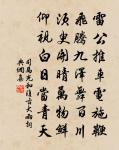 雷公推車電施鞭
飛騰九澤舞百川
須臾開晴萬物鮮
仰視白日當青天
司馬光和復古大雨詞